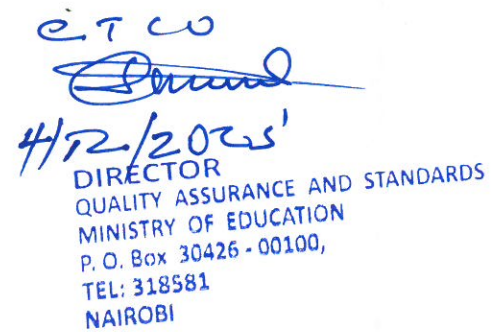 CTCO
4/12/2025
DIRECTOR
QUALITY ASSURANCE AND STANDARDS
MINISTRY OF EDUCATION
P. O. Box 30426 - 00100,
TEL: 318581
NAIROBI